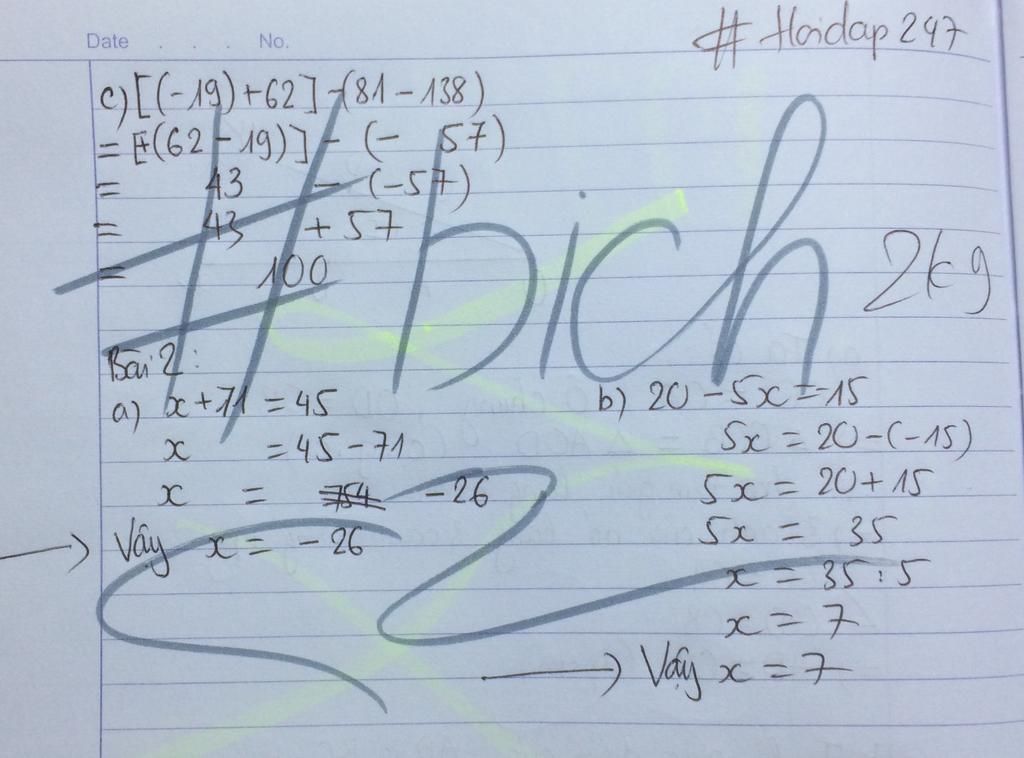 Date . . . . No.
# Hoidap 247
c) [(-19)+62] - (81 - 138)
= [+(62 - 19)] - (- 57)
= 43 - (-57)
= 43 + 57
= 100
# bich
2kg
Bài 2:
a) x + 71 = 45
x = 45 - 71
x = -26
Vậy x = - 26
b) 20 - 5x = -15
5x = 20 - (-15)
5x = 20 + 15
5x = 35
x = 35 : 5
x = 7
Vậy x = 7